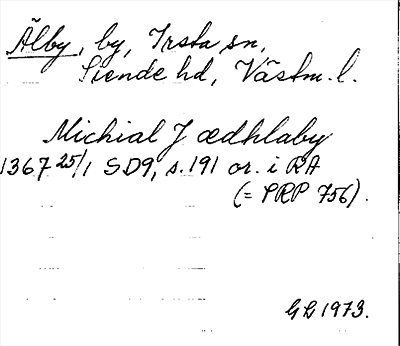 Älby, by, Irsta sn,
Siende hd, Västm. l.
Michial J ædhlaby
1367 25/1 SD9, s. 191 or. i RA
(= PRP 756).
GL 1973.